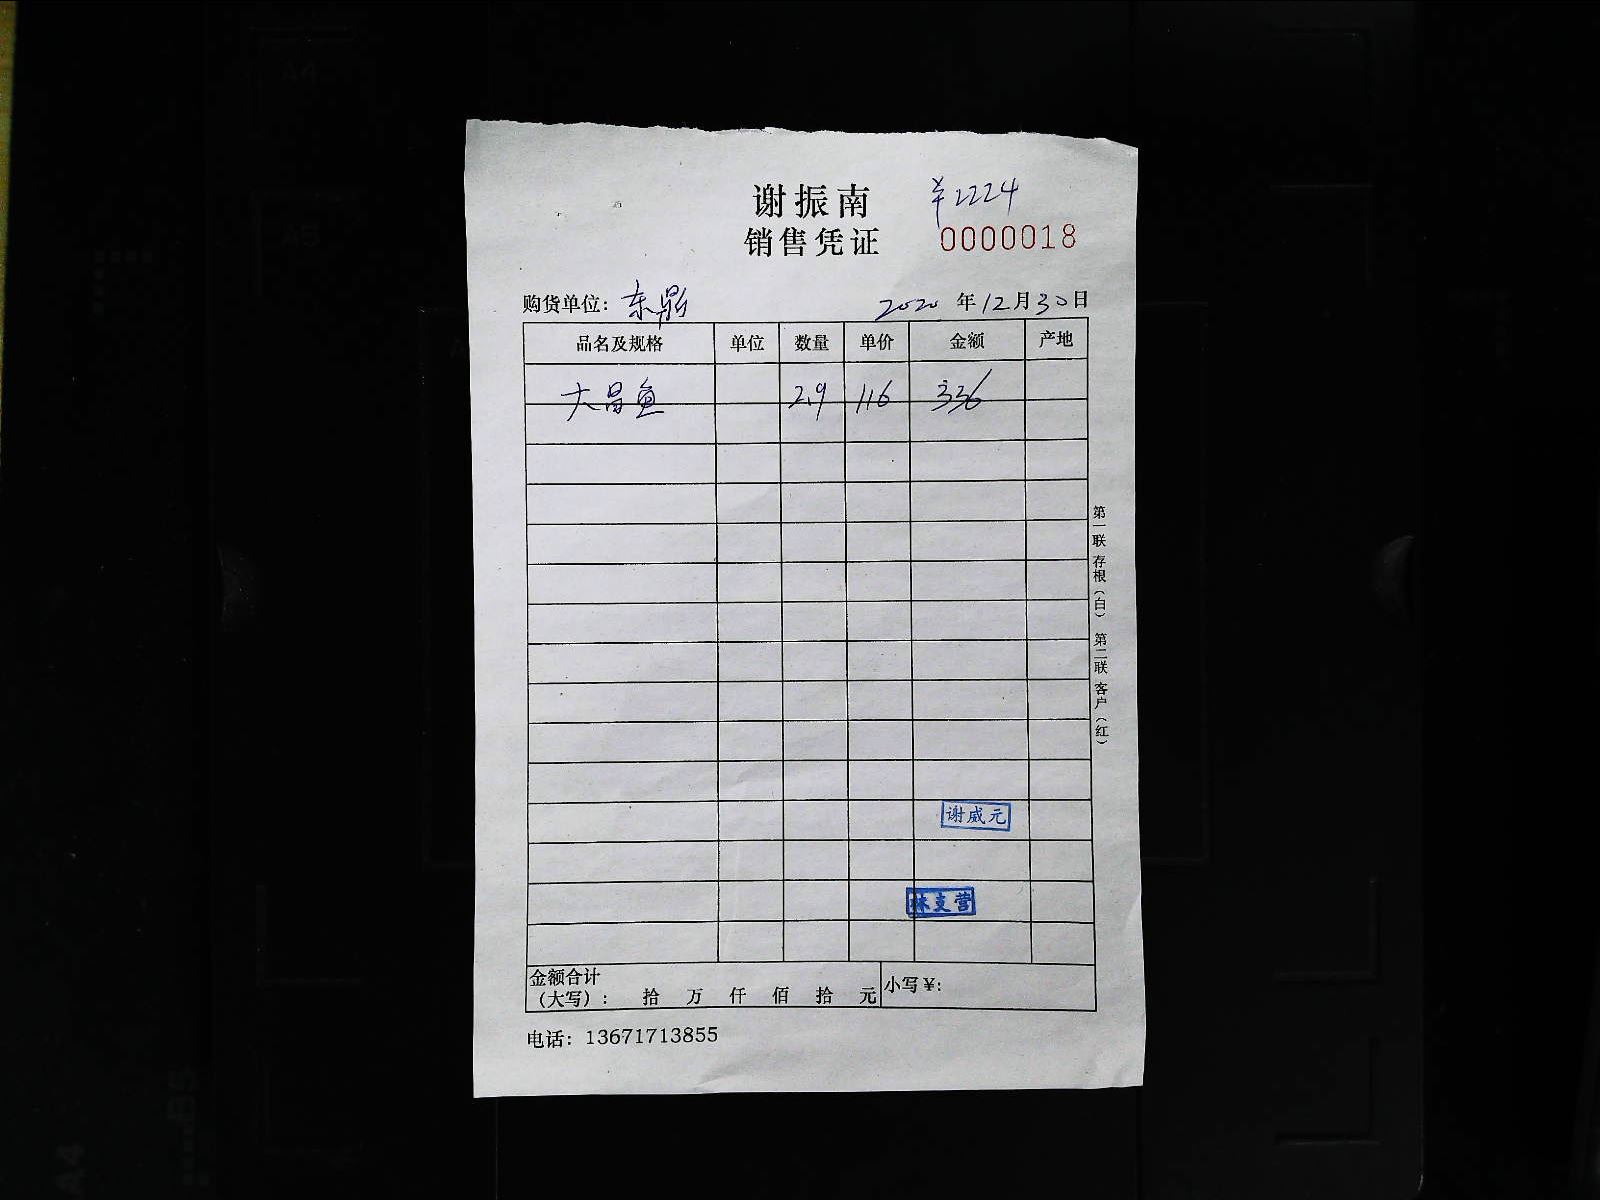 谢振南
¥2224
销售凭证
0000018
购货单位：东鼎
2020 年 12 月 30 日
品名及规格 单位 数量 单价 金额 产地
大昌鱼 2.9 116 336
第一联 存根（白） 第二联 客户（红）
谢威元
林支营
金额合计
（大写）： 拾 万 仟 佰 拾 元
小写¥：
电话：13671713855
A4
A5
B5
A4